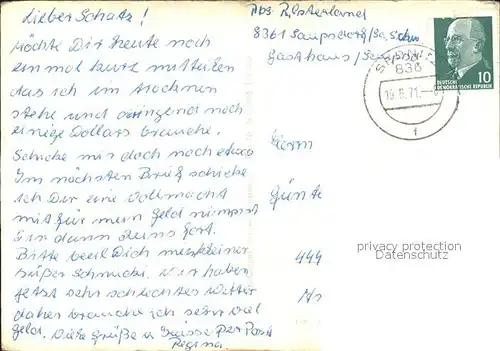 Lieber Schatz!
Möchte Dir heute noch
einmal kurz mitteilen
das ich im trocknen
stehe und dringend noch
einige Dollars brauche.
Schicke mir doch noch etwas
Im nächsten Brief schicke
ich Dir eine Vollmacht
mit für mein Geld nimmst
Du dann Deins fort.
Bitte beeil Dich mein kleiner
süßer Schnucki. Wir haben
jetzt sehr schlechtes Wetter
daher brauche ich sehr viel
Geld. Viele Grüße u. Küsse Per Post
Regina.
Abs. R.
8361 Saupsdorf/Sä. Schw
Gasthaus
SEBNITZ
836
19.8.71.
f
10
DEUTSCHE
DEMOKRATISCHE REPUBLIK
Herrn
Günte
444
privacy protection
Datenschutz